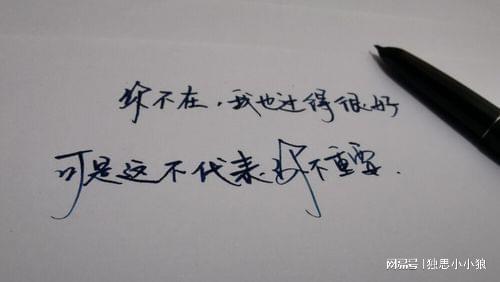 你不在，我也过得很好
可是这不代表你不重要.
网易号|独思小小狼